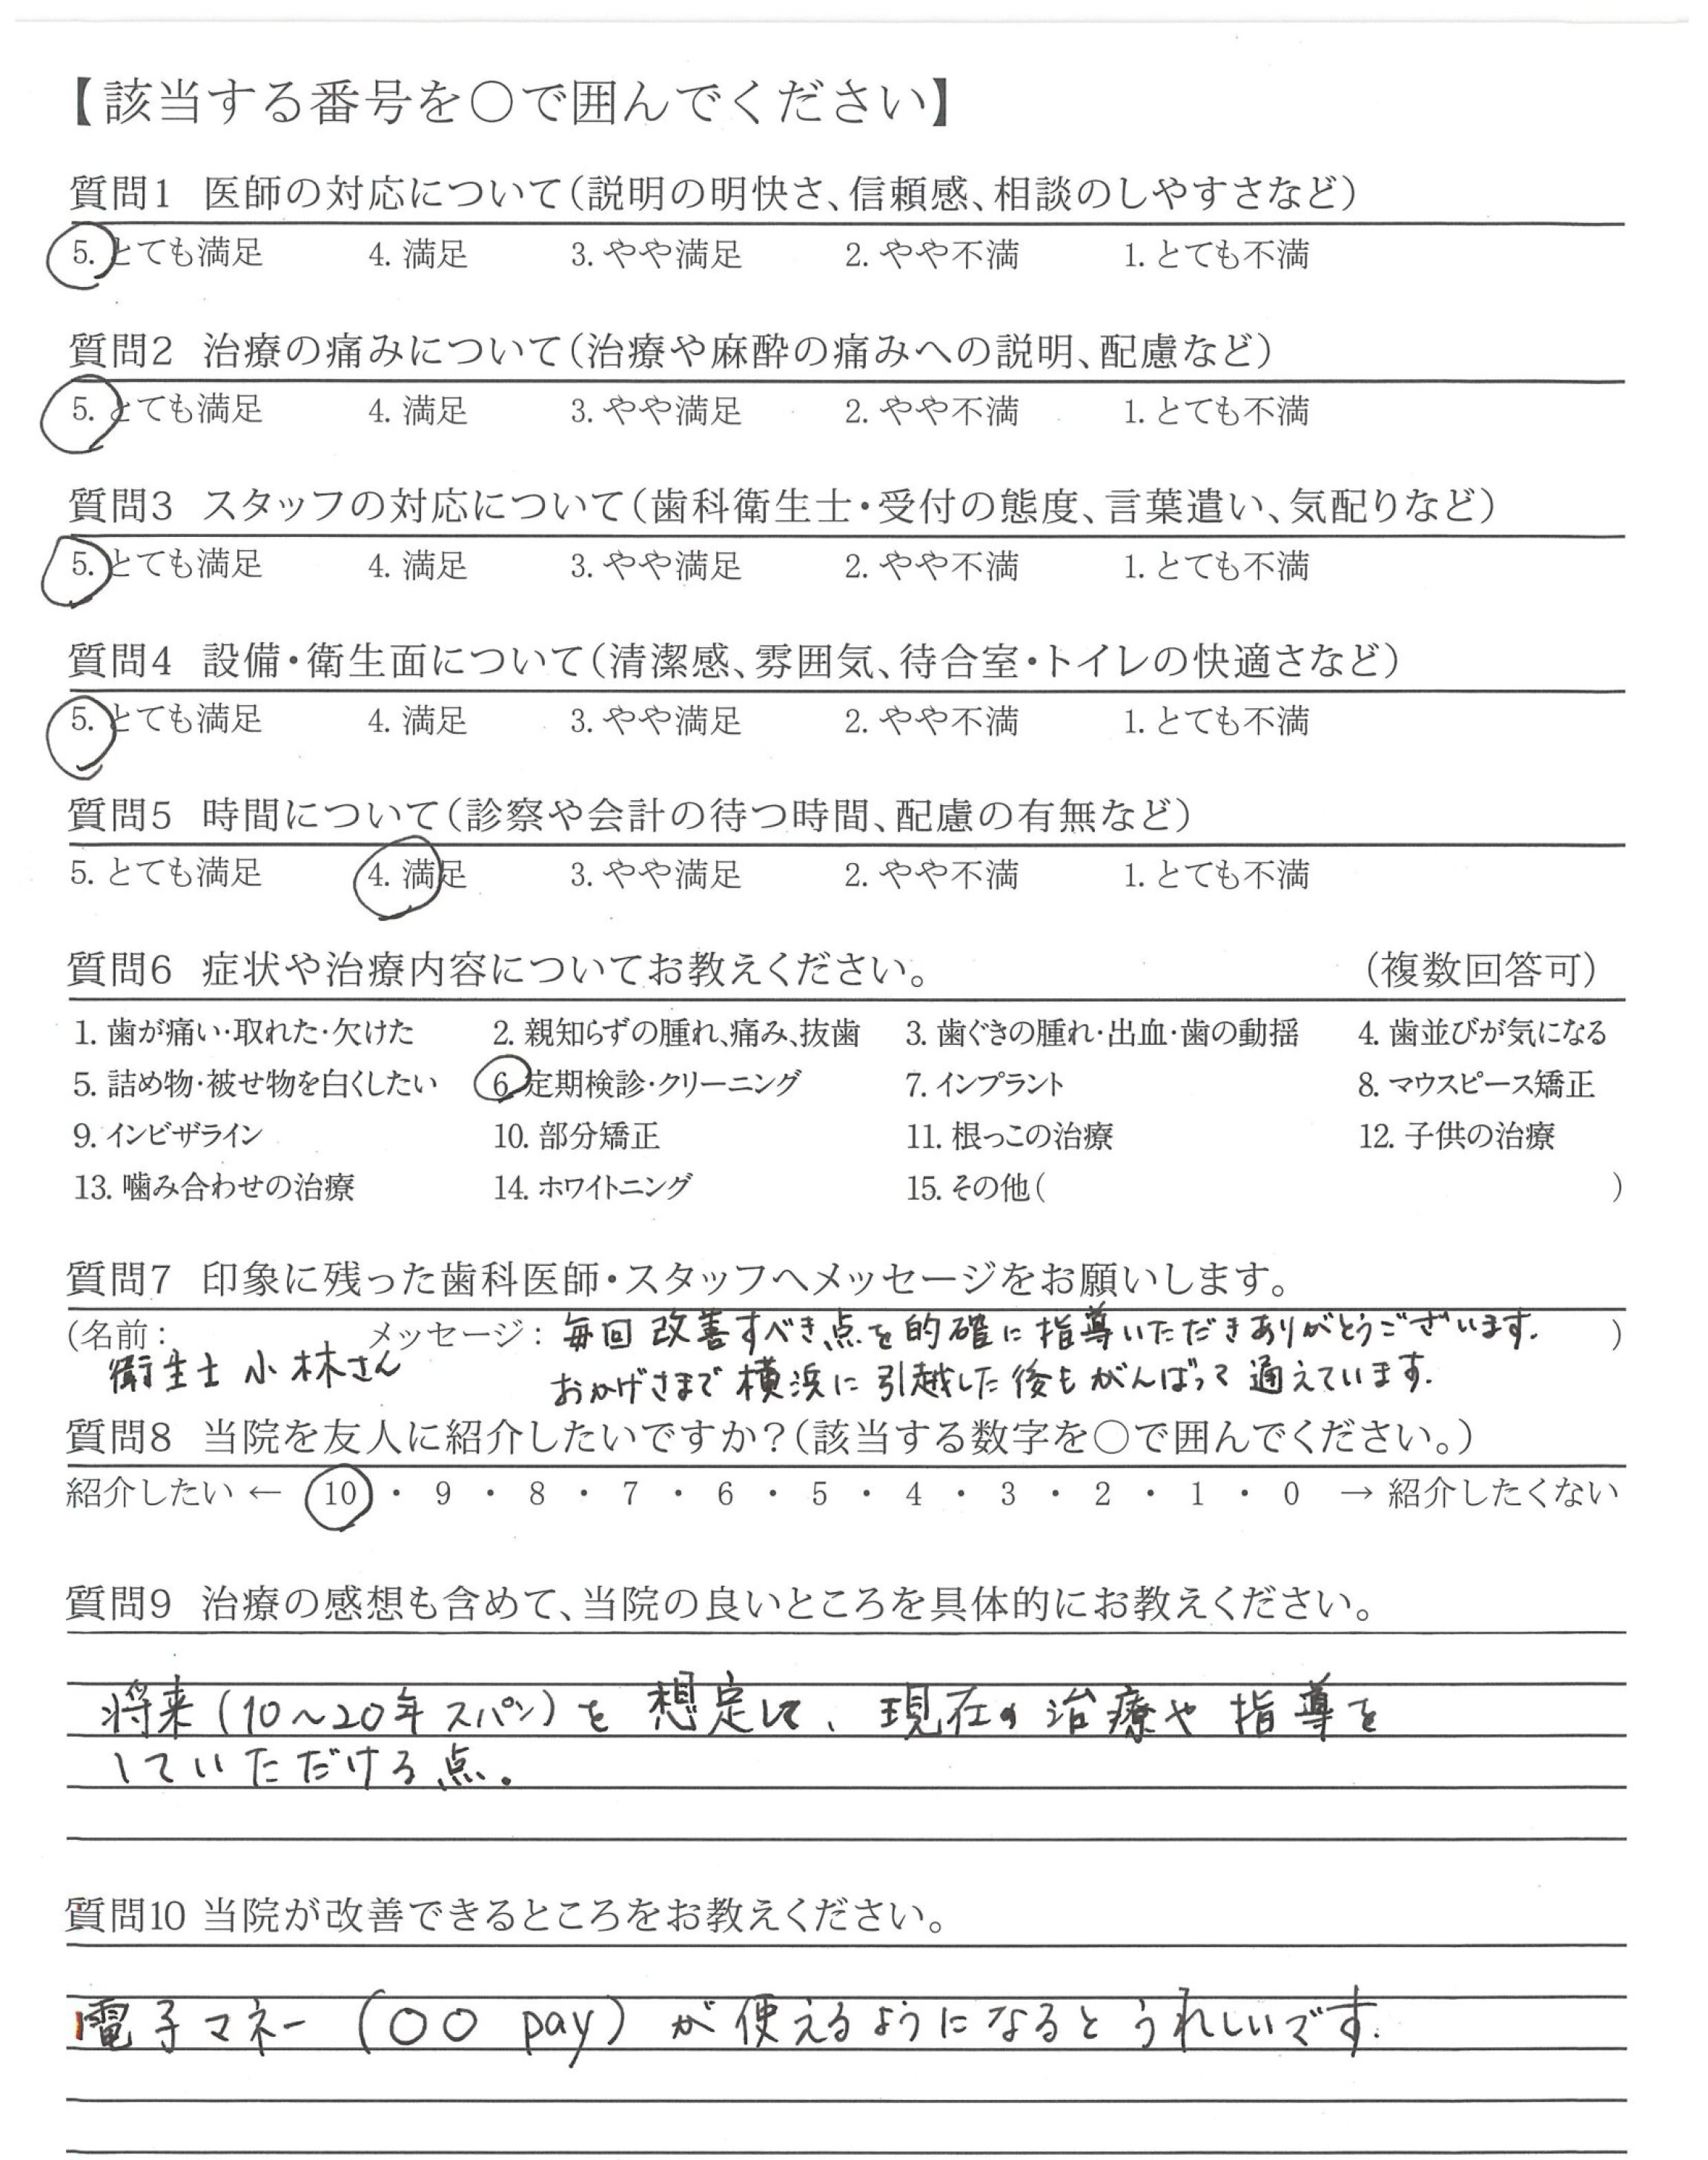 【該当する番号を〇で囲んでください】
質問1 医師の対応について(説明の明快さ、信頼感、相談のしやすさなど)
5. とても満足 4. 満足 3. やや満足 2. やや不満 1. とても不満
質問2 治療の痛みについて(治療や麻酔の痛みへの説明、配慮など)
5. とても満足 4. 満足 3. やや満足 2. やや不満 1. とても不満
質問3 スタッフの対応について(歯科衛生士・受付の態度、言葉遣い、気配りなど)
5. とても満足 4. 満足 3. やや満足 2. やや不満 1. とても不満
質問4 設備・衛生面について(清潔感、雰囲気、待合室・トイレの快適さなど)
5. とても満足 4. 満足 3. やや満足 2. やや不満 1. とても不満
質問5 時間について(診察や会計の待つ時間、配慮の有無など)
5. とても満足 4. 満足 3. やや満足 2. やや不満 1. とても不満
質問6 症状や治療内容についてお教えください。 (複数回答可)
1. 歯が痛い・取れた・欠けた 2. 親知らずの腫れ、痛み、抜歯 3. 歯ぐきの腫れ・出血・歯の動揺 4. 歯並びが気になる
5. 詰め物・被せ物を白くしたい 6. 定期検診・クリーニング 7. インプラント 8. マウスピース矯正
9. インビザライン 10. 部分矯正 11. 根っこの治療 12. 子供の治療
13. 噛み合わせの治療 14. ホワイトニング 15. その他( )
質問7 印象に残った歯科医師・スタッフへメッセージをお願いします。
(名前: メッセージ: 毎回 改善すべき点を的確に指導いただきありがとうございます. )
衛生士 小林さん おかげさまで横浜に引越した後もがんばって通えています.
質問8 当院を友人に紹介したいですか?(該当する数字を〇で囲んでください。)
紹介したい ← 10 ・ 9 ・ 8 ・ 7 ・ 6 ・ 5 ・ 4 ・ 3 ・ 2 ・ 1 ・ 0 → 紹介したくない
質問9 治療の感想も含めて、当院の良いところを具体的にお教えください。
将来(10〜20年スパン)を想定して、現在の治療や指導を
していただける点。
質問10 当院が改善できるところをお教えください。
電子マネー (〇〇 pay) が使えるようになるとうれしいです.